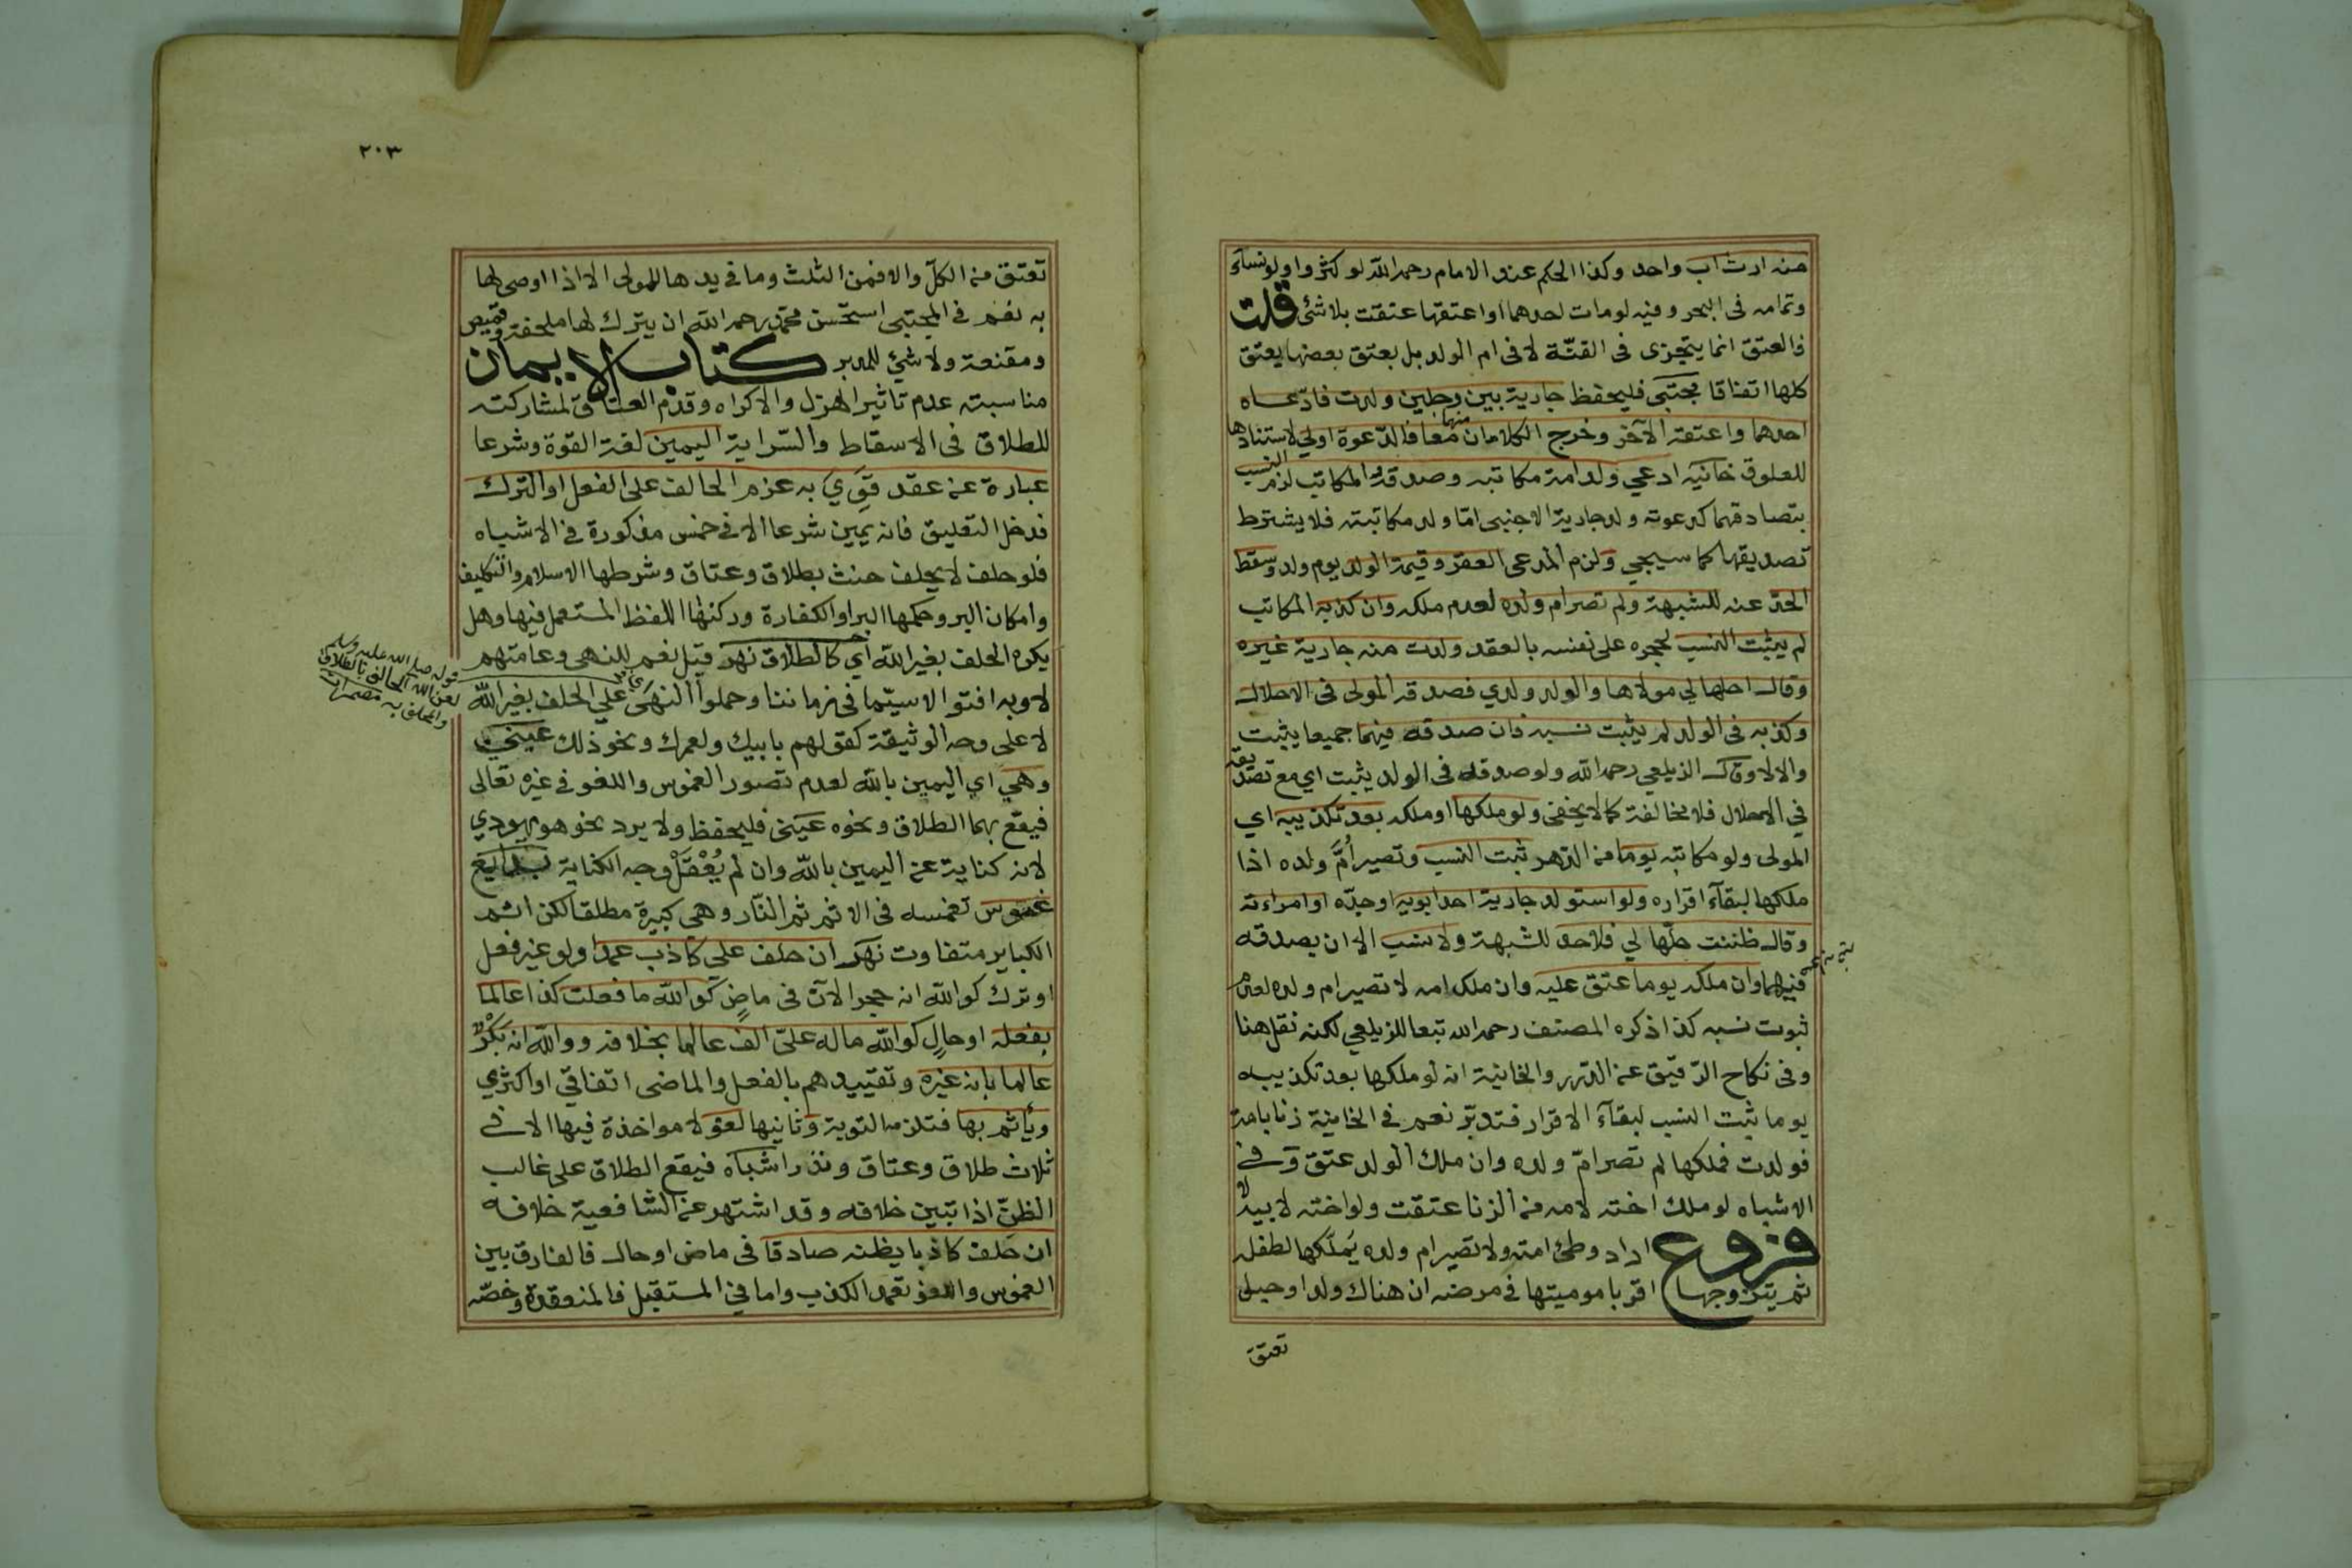 منه ارث اب واحد وكذا الحكم عند الامام رحمه الله لو كثروا ولو نساء
وتمامه فى البحر وفيه لو مات احدهما او اعتقها عتقت بلا شئ قلت
فالعتق انما يتجزى فى القنّة لا فى ام الولد بل بعتق بعضها يعتق
كلها اتفاقا مجتبى فليحفظ جارية بين رجلين ولدت فادّعاه
احدهما واعتقه الآخر وخرج الكلامان منهما معا فالدّعوة اولى لاستنادها
للعلوق خانيه ادعى ولد امة مكاتبه وصدقه المكاتب لزم النسب
بتصادقهما كدعوته ولد جارية الاجنبى امّا ولد مكاتبته فلا يشترط
تصديقها كما سيجي ولزم المدعى العقر وقيمة الولد يوم ولد وسقط
الحدّ عنه للشبهة ولم تصر ام ولده لعدم ملكه وان كذبه المكاتب
لم يثبت النسب لحجره على نفسه بالعقد ولدت منه جارية غيره
وقال احلها لي مولاها والولد ولدي فصدقه المولى فى الاحلال
وكذبه فى الولد لم يثبت نسبه فان صدقه فيهما جميعا يثبت
والا لا وقال الذيلعي رحمه الله ولو صدقه فى الولد يثبت اي مع تصديقه
في الاحلال فلا مخالفة كما لا يخفى ولو ملكها او ملكه بعد تكذيبه اي
المولى ولو مكاتبه يوما من الدّهر ثبت النسب وتصير أُمَّ ولده اذا
ملكها لبقآء اقراره ولو استولد جارية احد ابويه او جدّه او امراءته
وقال ظننت حلّها لي فلا حد للشبهة ولا نسب الا ان يصدقه
فيهما وان ملكه يوما عتق عليه وان ملك امه لا تصير ام ولده لعدم
ثبوت نسبه كذا ذكره المصنف رحمه الله تبعا للزيلعي لكنه نقل هنا
وفى نكاح الرّقيق عن الدّرر والخانية انه لو ملكها بعد تكذيبه
يوما ثبت النسب لبقآء الاقرار فتدبّر نعم في الخانية زنا بامة
فولدت فملكها لم تصر امّ ولده وان ملك الولد عتق وفى
الاشباه لو ملك اخته لامه من الزنا عتقت ولو اخته لابيه لا
فروع اراد وطئ امته ولا تصير ام ولده يُملّكها لطفله
ثم يتزوجها اقر باموميتها في مرضه ان هناك ولد او حبل
تعتق
٢٠٣
تعتق من الكلّ والا فمن الثلث وما في يدها للمولى الا اذا اوصى لها
به نعم في المجتبى استحسن محمّد رحمه الله ان يترك لها ملحفة وقميص
ومقنعة ولا شئ للمدبر كتاب الايمان
مناسبته عدم تاثير الهزل والاكراه وقدّم العتاق لمشاركته
للطلاق فى الاسقاط والسّراية اليمين لغة القوة وشرعا
عبارة عن عقد قَوِيَ به عزم الحالف على الفعل او الترك
فدخل التعليق فانه يمين شرعا الا في خمس مذكورة في الاشباه
فلو حلف لا يحلف حنث بطلاق وعتاق وشرطها الاسلام والتكليف
وامكان البر وحكمها البر او الكفارة وركنها اللفظ المستعمل فيها وهل
يكره الحلف بغير الله اي كالطلاق نهر قيل نعم للنهى وعامتهم
قوله صلى الله عليه وسلم
لعن الله الحالف بالطلاق
والمحلف به
لا وبه افتوا لا سيّما فى زماننا وحملوا النهى علي الحلف بغير الله
لا على وجه الوثيقة كقولهم بابيك ولعمرك ونحو ذلك عينى
وهي اي اليمين بالله لعدم تصور الغموس واللغو في غيره تعالى
فيقع بهما الطلاق ونحوه عينى فليحفظ ولا يرد نحو هو يهودي
لانه كناية عن اليمين بالله وان لم يُعْقَلْ وجه الكناية بدايع
غموس تغمسه فى الاثم ثم النّار وهى كبيرة مطلقا لكن اثم
الكباير متفاوت نهر ان حلف على كاذب عمدا ولو غير فعل
او ترك كوالله انه حجر الآن فى ماضٍ كوالله ما فعلت كذا عالما
بفعله او حالٍ كوالله ماله علىّ الف عالما بخلافه ووالله انه بَكْرٌ
عالما بانه غيره وتقييدهم بالفعل والماضى اتفاقي او اكثري
ويأثم بها فتلزمه التوبة وثانيها لغو لا مواخذة فيها الا فى
ثلاث طلاق وعتاق ونذر اشباه فيقع الطلاق على غالب
الظنّ اذا تبين خلافه وقد اشتهر عن الشافعية خلافه
ان حلف كاذبا يظنه صادقا فى ماض او حال فالفارق بين
الغموس واللغو تعمد الكذب واما في المستقبل فالمنعقدة وخصّه